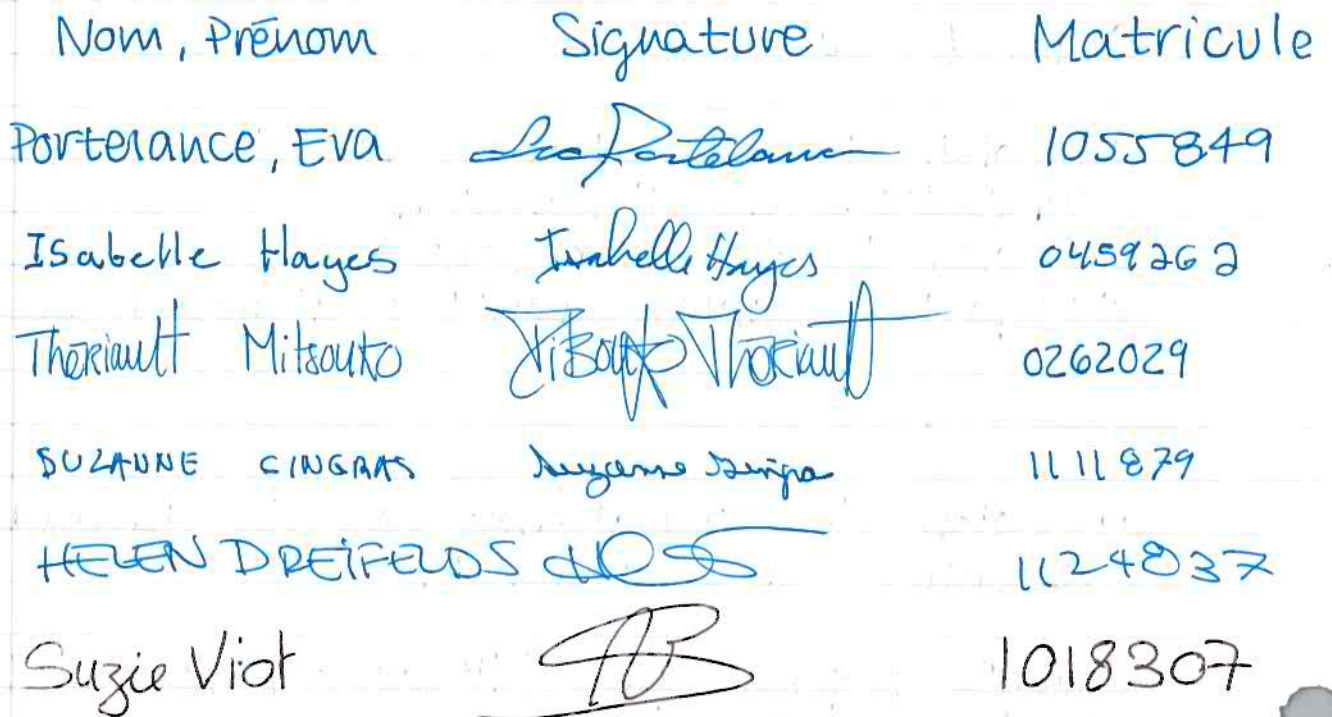 Nom, Prénom Signature Matricule
Portelance, Eva Eva Portelance 1055849
Isabelle Hayes Isabelle Hayes 0459262
Theriault Mitsouko Mitsouko Theriault 0262029
SUZANNE GINGRAS Suzanne Gingras 1111879
HELEN DREIFELDS 1124837
Suzie Viot 1018307